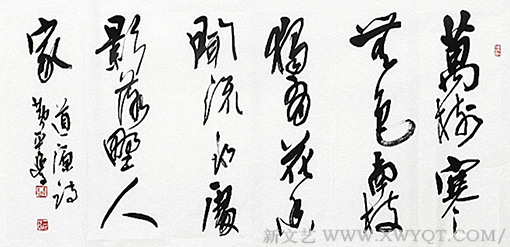 萬樹寒
無色南枝
獨有花香
聞流水處
影落野人
家
道源詩
新文艺 WWW.XWYQT.COM/